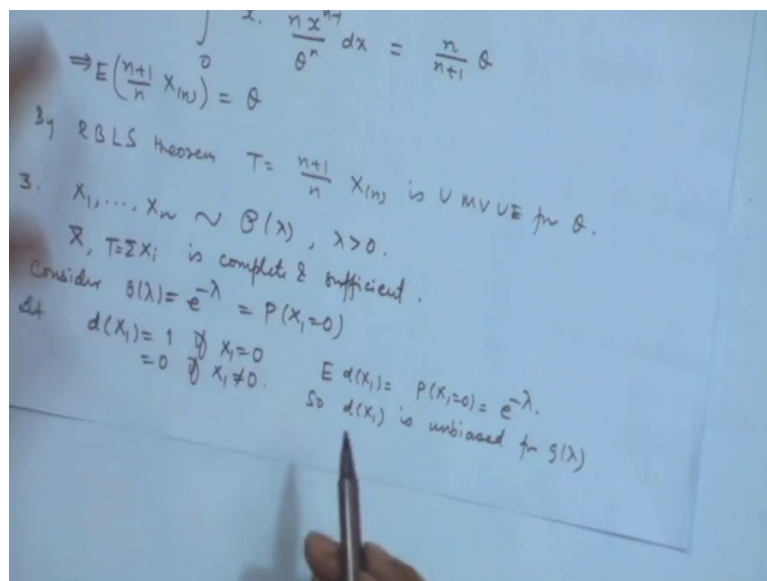 ∫₀ x. n xⁿ⁻¹/θⁿ dx = n/(n+1) θ
⇒ E( (n+1)/n X₍ₙ₎ ) = θ
By RBLS theorem T = (n+1)/n X₍ₙ₎ is UMVUE for θ.
3. X₁, ..., Xₙ ~ P(λ), λ>0.
X̄, T=ΣXᵢ is complete & sufficient.
Consider g(λ) = e^{-λ} = P(X₁=0)
Let d(X₁) = 1 if X₁=0
= 0 if X₁≠0.
E d(X₁) = P(X₁=0) = e^{-λ}.
So d(X₁) is unbiased for g(λ)